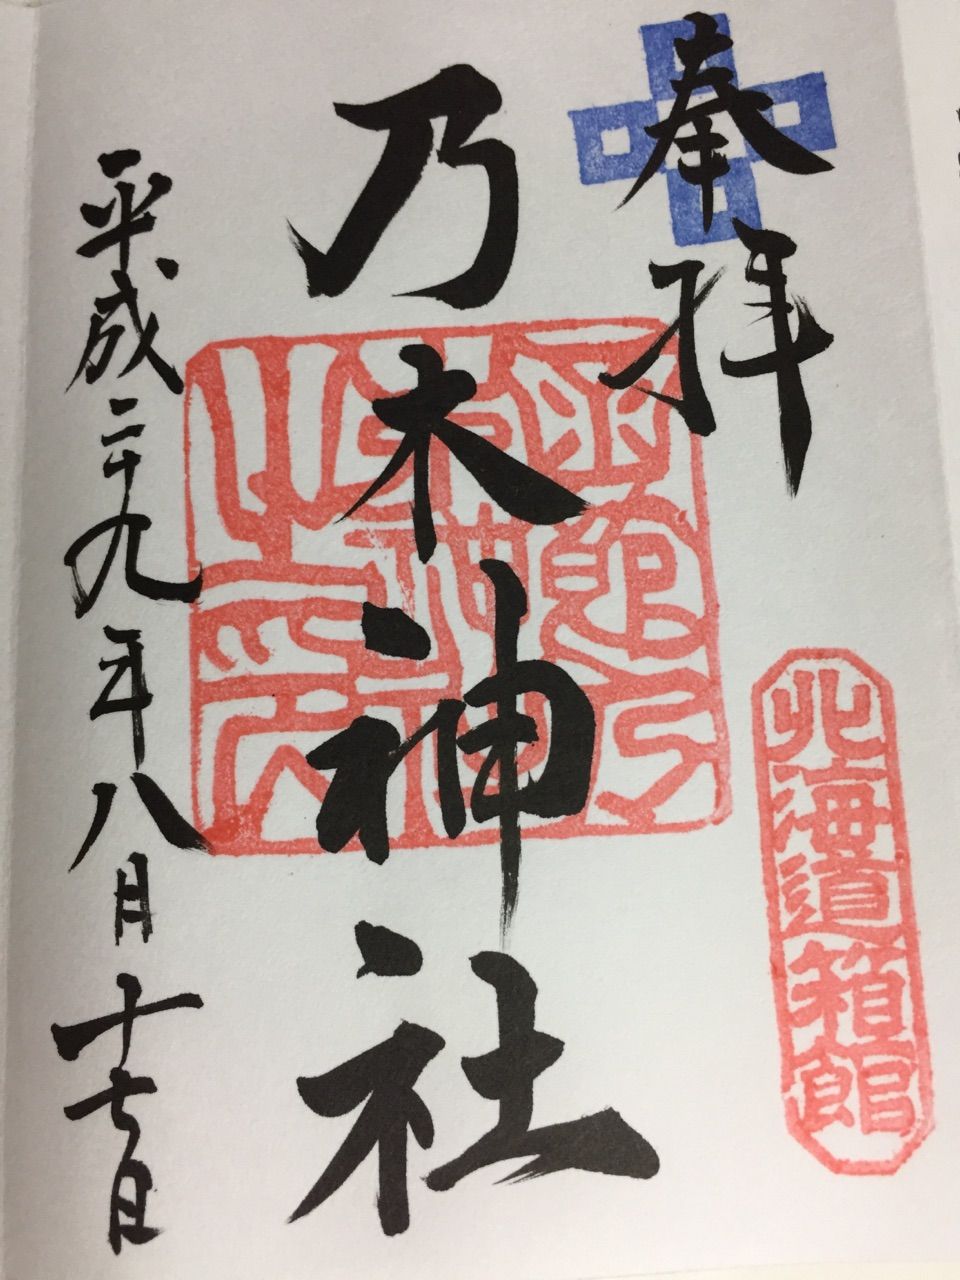 奉拝
北海道箱館
乃木神社
函館乃木神社之印
平成二十九年八月十七日